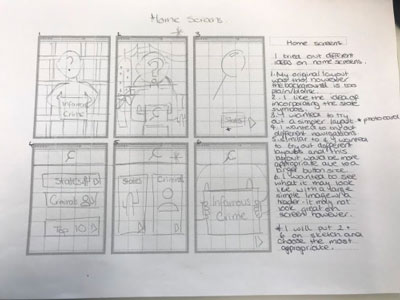 Home Screens
1
2
3
?
?
Infamous
Crime
States
4
5
6
States
Criminals
Top 10
States
Criminals
Infamous
Crime
Home screens
I tried out different
ideas on home screens.
1. My original layout
was this however
the background is too
plain
2. I like the idea of
incorporating the state
symbols.
3. I wanted to try
out a simpler layout * photo cover
4. I wanted to try out
different
5. Similar to 4 I wanted
to try out different
layouts and this
layout would be more
appropriate due to a
bigger button size.
6. I wanted to see
what it may look
like with a
simple image and
header. It may not
look great on
screen however.
* I will put 2 +
6 on sketch and
choose the most
appropriate.